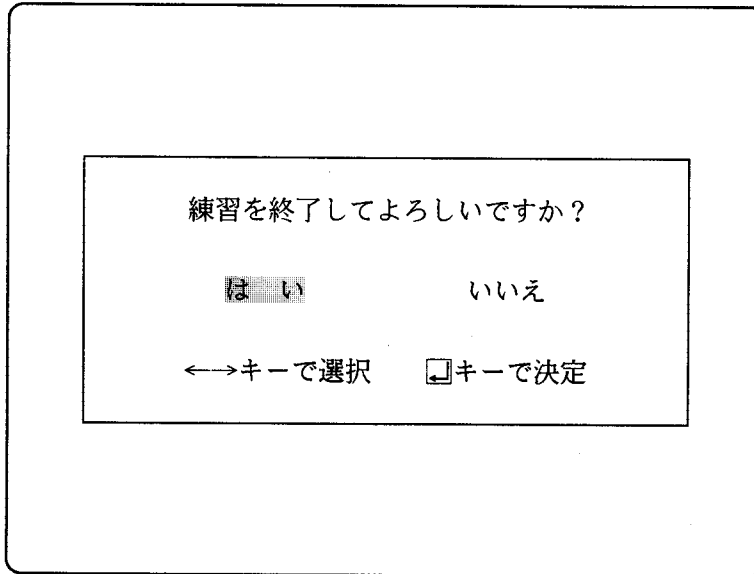 練習を終了してよろしいですか?
は い いいえ
←→キーで選択 ↵キーで決定